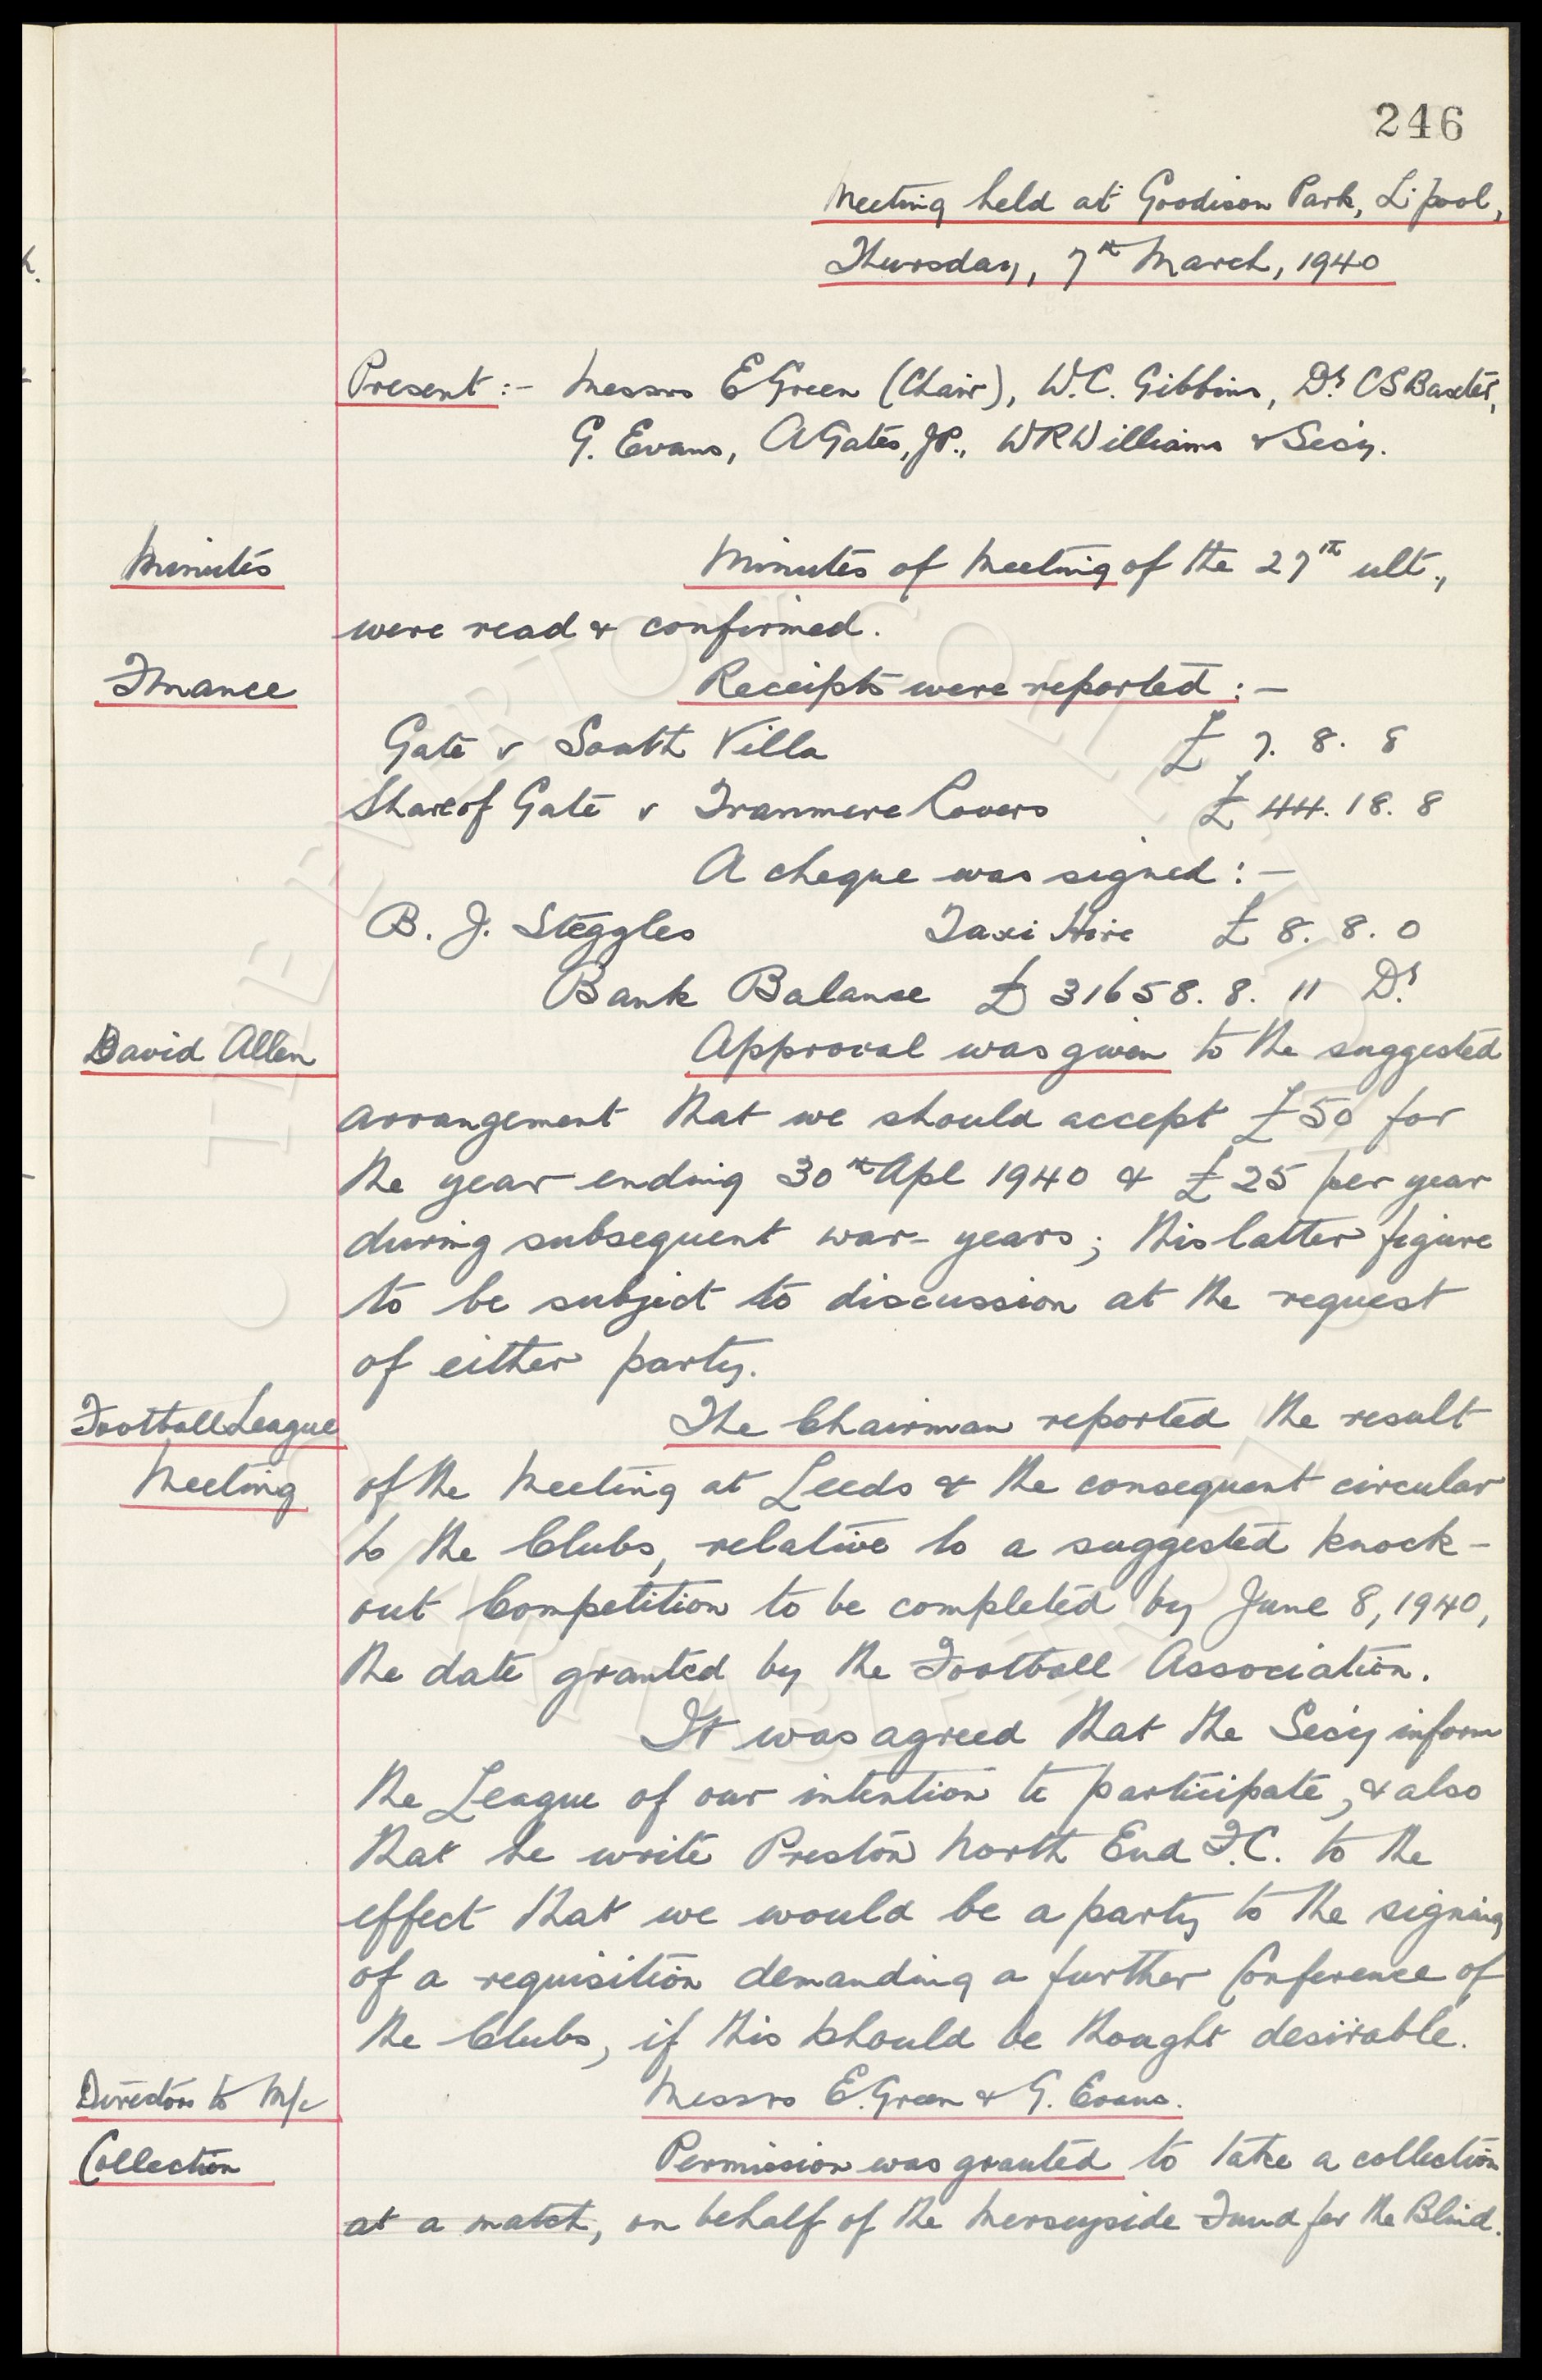 246
Meeting held at Goodison Park, L'pool,
Thursday, 7th March, 1940
Present :- Messrs E Green (Chair), W.C. Gibbins, Dr. C S Baxter,
G. Evans, A Gates, JP., W R Williams & Sec'y.
Minutes Minutes of Meeting of the 27th ult.,
were read & confirmed.
Finance Receipts were reported :-
Gate v South Villa £ 7. 8. 8
Share of Gate v Tranmere Rovers £ 44. 18. 8
A cheque was signed :-
B. J. Steggles Taxi Hire £ 8. 8. 0
Bank Balance £ 31658. 8. 11 Dr.
David Allen Approval was given to the suggested
arrangement that we should accept £50 for
the year ending 30th Apl 1940 & £25 per year
during subsequent war-years; this latter figure
to be subject to discussion at the request
of either party.
Football League The Chairman reported the result
Meeting of the Meeting at Leeds & the consequent circular
to the Clubs, relative to a suggested knock-
out Competition to be completed by June 8, 1940,
the date granted by the Football Association.
It was agreed that the Sec'y inform
the League of our intention to participate, & also
that he write Preston North End F.C. to the
effect that we would be a party to the signing
of a requisition demanding a further Conference of
the Clubs, if this should be thought desirable.
Directors to M/c Messrs E. Green & G. Evans.
Collection Permission was granted to take a collection
at a match, on behalf of the Merseyside Fund for the Blind.
THE EVERTON COLLECTION